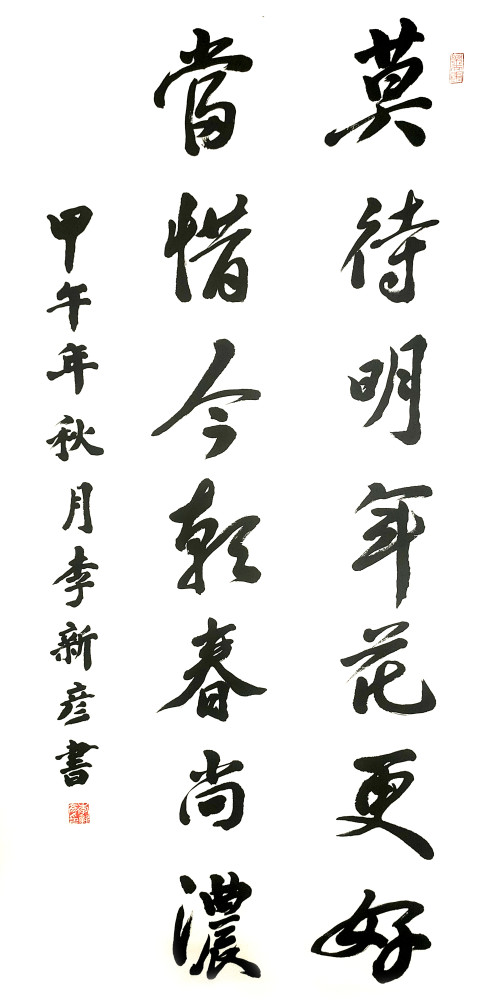 莫待明年花更好
當惜今朝春尚濃
甲午年秋月李新彦書